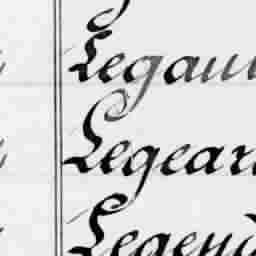 Legau
Legear
Legend